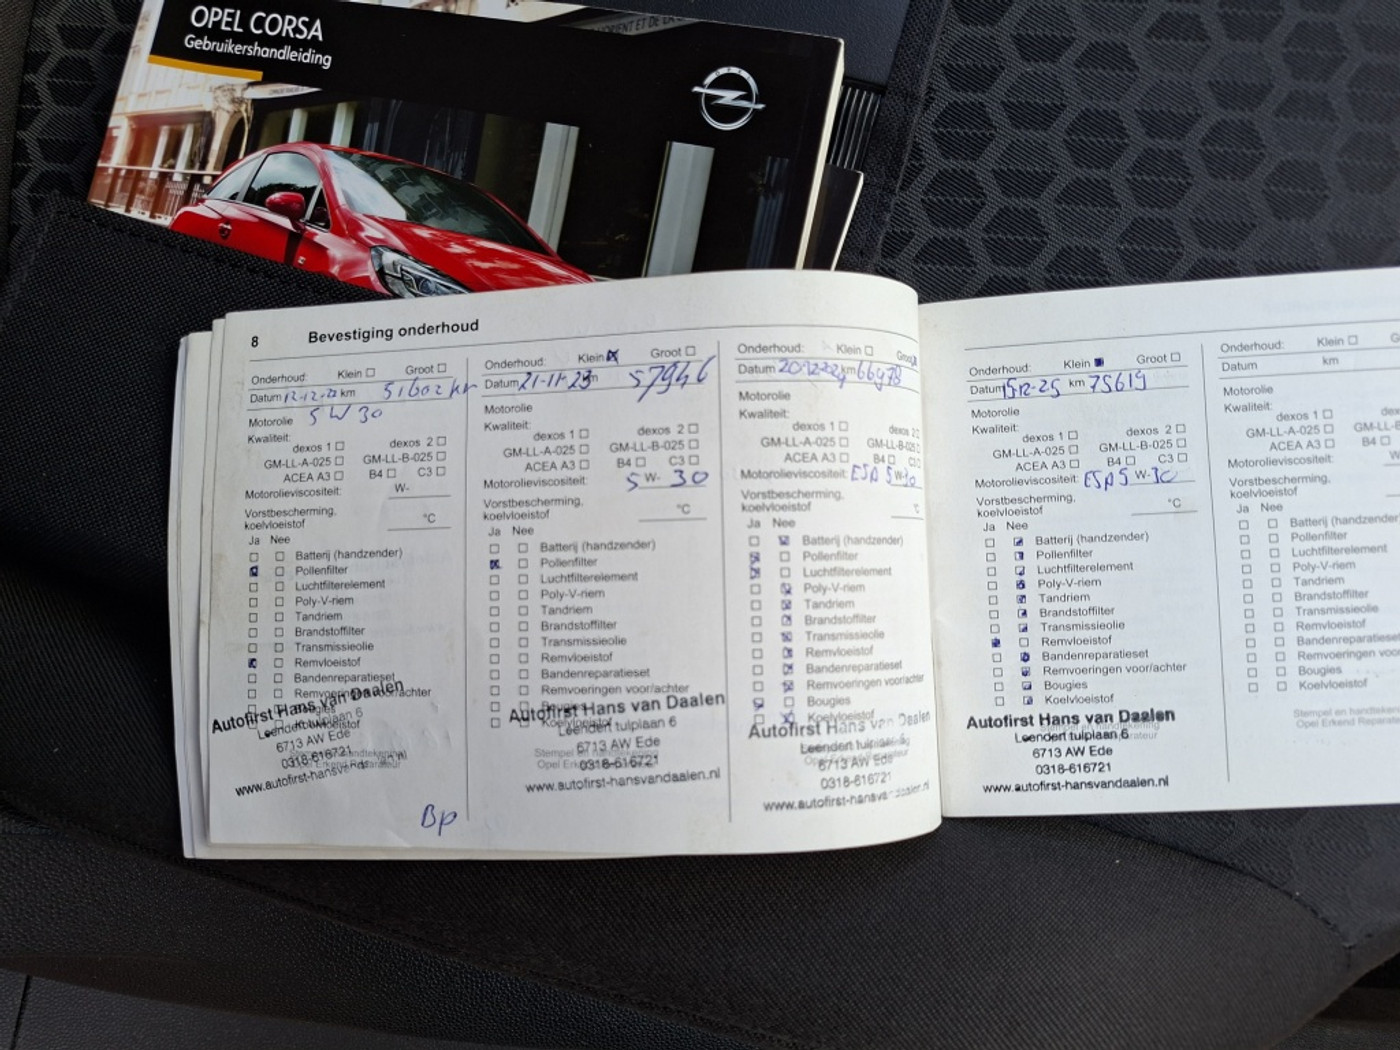 OPEL CORSA
Gebruikershandleiding
OPEL
8 Bevestiging onderhoud
Onderhoud: Klein Groot
Datum 12-12-22 km 51602 km
Motorolie 5 W 30
Kwaliteit:
dexos 1 dexos 2
GM-LL-A-025 GM-LL-B-025
ACEA A3 B4 C3
Motorolieviscositeit: W-
Vorstbescherming,
koelvloeistof °C
Ja Nee
Batterij (handzender)
Pollenfilter
Luchtfilterelement
Poly-V-riem
Tandriem
Brandstoffilter
Transmissieolie
Remvloeistof
Bandenreparatieset
Remvoeringen voor/achter
Bougies
Koelvloeistof
Autofirst Hans van Daalen
Leendert tulplaan 6
6713 AW Ede
0318-616721
www.autofirst-hansvandaalen.nl
Bp
Onderhoud: Klein Groot
Datum 21-11-23 km 57946
Motorolie
Kwaliteit:
dexos 1 dexos 2
GM-LL-A-025 GM-LL-B-025
ACEA A3 B4 C3
Motorolieviscositeit: 5 W- 30
Vorstbescherming,
koelvloeistof °C
Ja Nee
Batterij (handzender)
Pollenfilter
Luchtfilterelement
Poly-V-riem
Tandriem
Brandstoffilter
Transmissieolie
Remvloeistof
Bandenreparatieset
Remvoeringen voor/achter
Bougies
Koelvloeistof
Autofirst Hans van Daalen
Leendert tulplaan 6
Stempel en handtekening
6713 AW Ede
Opel Erkend
0318-616721
www.autofirst-hansvandaalen.nl
Onderhoud: Klein Groot
Datum 20-12-2024 km 66978
Motorolie
Kwaliteit:
dexos 1 dexos 2
GM-LL-A-025 GM-LL-B-025
ACEA A3 B4 C3
Motorolieviscositeit: ESP 5 W-30
Vorstbescherming,
koelvloeistof °C
Ja Nee
Batterij (handzender)
Pollenfilter
Luchtfilterelement
Poly-V-riem
Tandriem
Brandstoffilter
Transmissieolie
Remvloeistof
Bandenreparatieset
Remvoeringen voor/achter
Bougies
Koelvloeistof
Autofirst Hans van Daalen
Leendert tulplaan 6
6713 AW Ede
0318-616721
www.autofirst-hansvandaalen.nl
Onderhoud: Klein Groot
Datum 15-12-25 km 75619
Motorolie
Kwaliteit:
dexos 1 dexos 2
GM-LL-A-025 GM-LL-B-025
ACEA A3 B4 C3
Motorolieviscositeit: ESP 5 W-30
Vorstbescherming,
koelvloeistof °C
Ja Nee
Batterij (handzender)
Pollenfilter
Luchtfilterelement
Poly-V-riem
Tandriem
Brandstoffilter
Transmissieolie
Remvloeistof
Bandenreparatieset
Remvoeringen voor/achter
Bougies
Koelvloeistof
Autofirst Hans van Daalen
Leendert tulplaan 6
6713 AW Ede
0318-616721
www.autofirst-hansvandaalen.nl
Onderhoud: Klein
Datum km
Motorolie
Kwaliteit:
dexos 1
GM-LL-A-025
ACEA A3 B4
Motorolieviscositeit:
Vorstbescherming,
koelvloeistof
Ja Nee
Batterij (handzender)
Pollenfilter
Luchtfilterelement
Poly-V-riem
Tandriem
Brandstoffilter
Transmissieolie
Remvloeistof
Bandenreparatieset
Remvoeringen
Bougies
Koelvloeistof
Stempel en handtekening
Opel Erkend